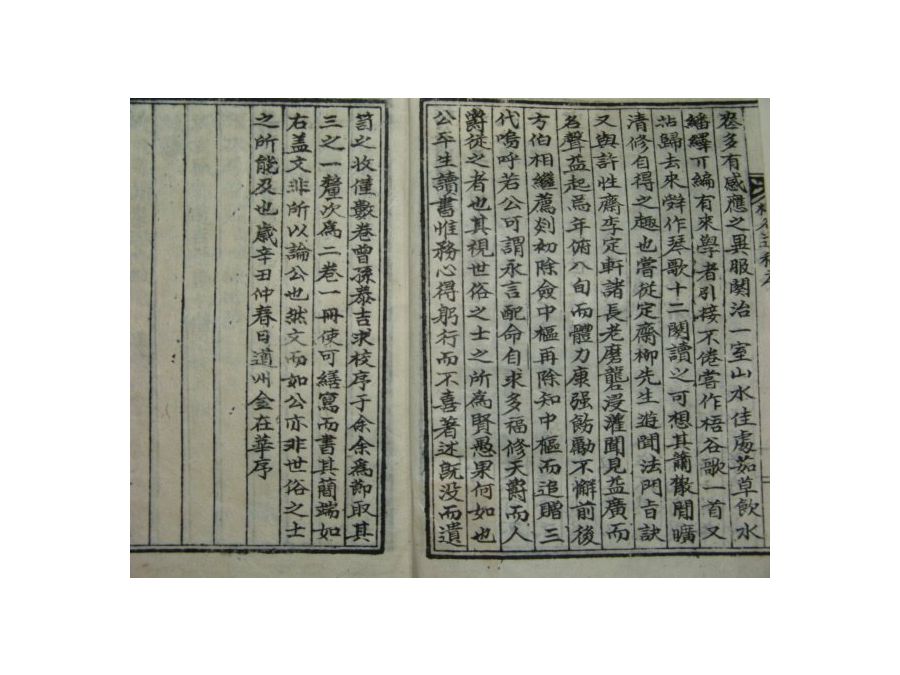 卷多有感應之異服闋治一室山水佳處茹草飲水
繙繹丌編有來學者引接不倦嘗作梧谷歌一首又
沾歸去來辭作琴歌十二闋讀之可想其蕭散閒曠
清修自得之趣也嘗從定齋柳先生遊聞法門旨訣
又與許性齋李定軒諸長老磨礲浸灌聞見益廣而
名聲益起焉年俯八旬而體力康强飭勵不懈前後
方伯相繼薦剡初除僉中樞再除知中樞而追贈三
代嗚呼若公可謂永言配命自求多福修天爵而人
爵從之者也其視世俗之士之所為賢愚果何如也
公平生讀書惟務心得躬行而不喜著述旣没而遺
笥之收僅數卷曾孫泰吉求校序于余余為節取其
三之一釐次為二卷一冊使可繕寫而書其蕑端如
右盖文非所以論公也然文而如公亦非世俗之士
之所能及也歲辛丑仲春日道州金在華序